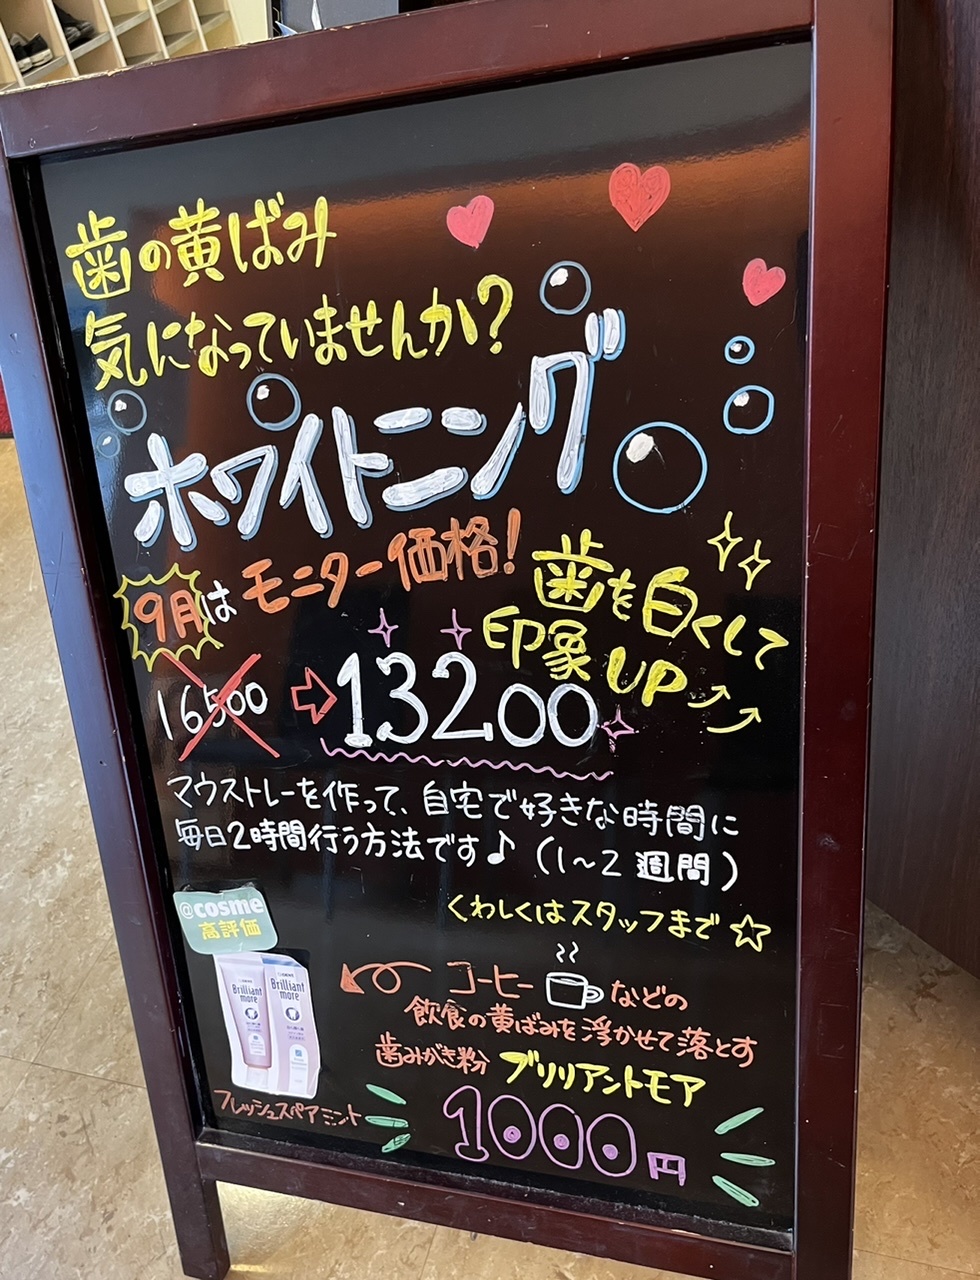 歯の黄ばみ
気になっていませんか?
ホワイトニング
9月はモニター価格!
歯を白くして
印象UP
16500 ⇨ 13200
マウストレーを作って、自宅で好きな時間に
毎日2時間行う方法です♪ (1~2週間)
くわしくはスタッフまで☆
@cosme
高評価
Brilliant
more
Brilliant
more
フレッシュスペアミント
コーヒーなどの
飲食の黄ばみを浮かせて落とす
歯みがき粉 ブリリアントモア
1000円